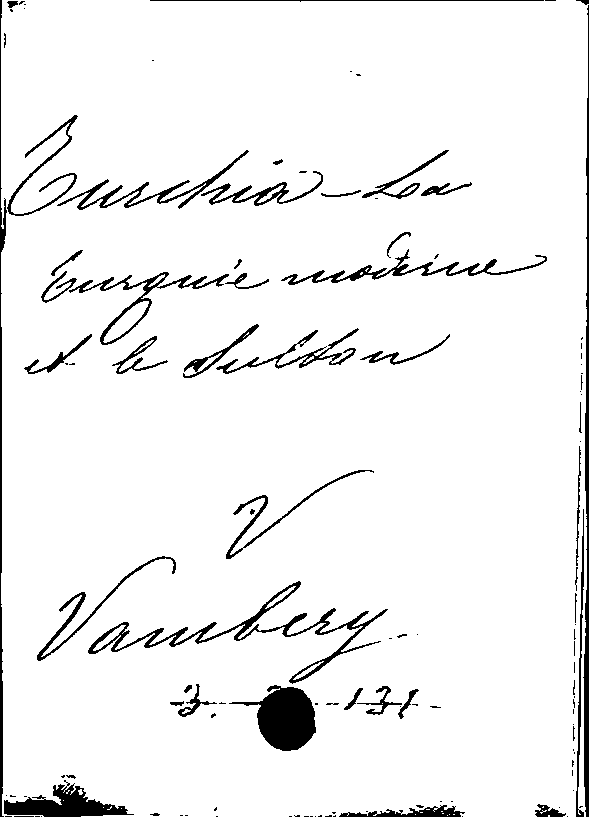 Turchia - La
Turquie moderne
et le Sultan
V
Vambery
3. 131